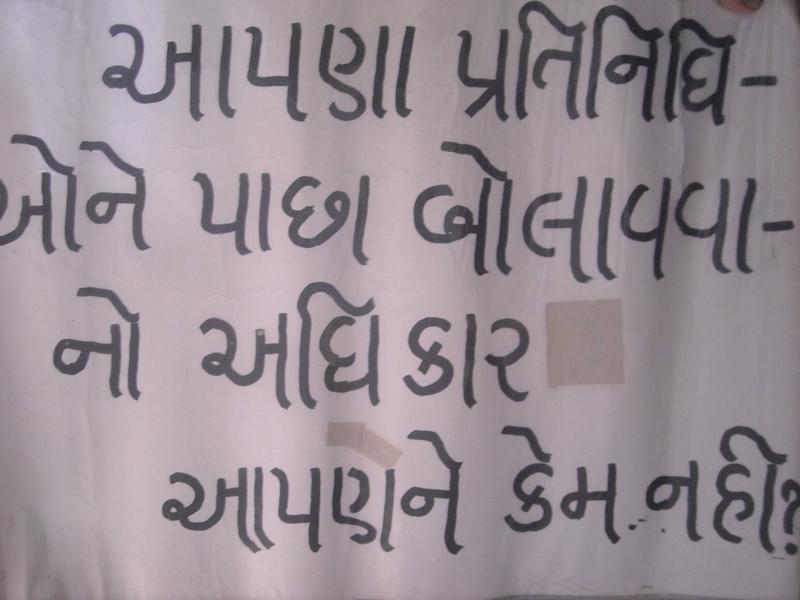 આપણા પ્રતિનિધિ-
ઓને પાછા બોલાવવા-
નો અધિકાર
આપણને કેમ નહી?